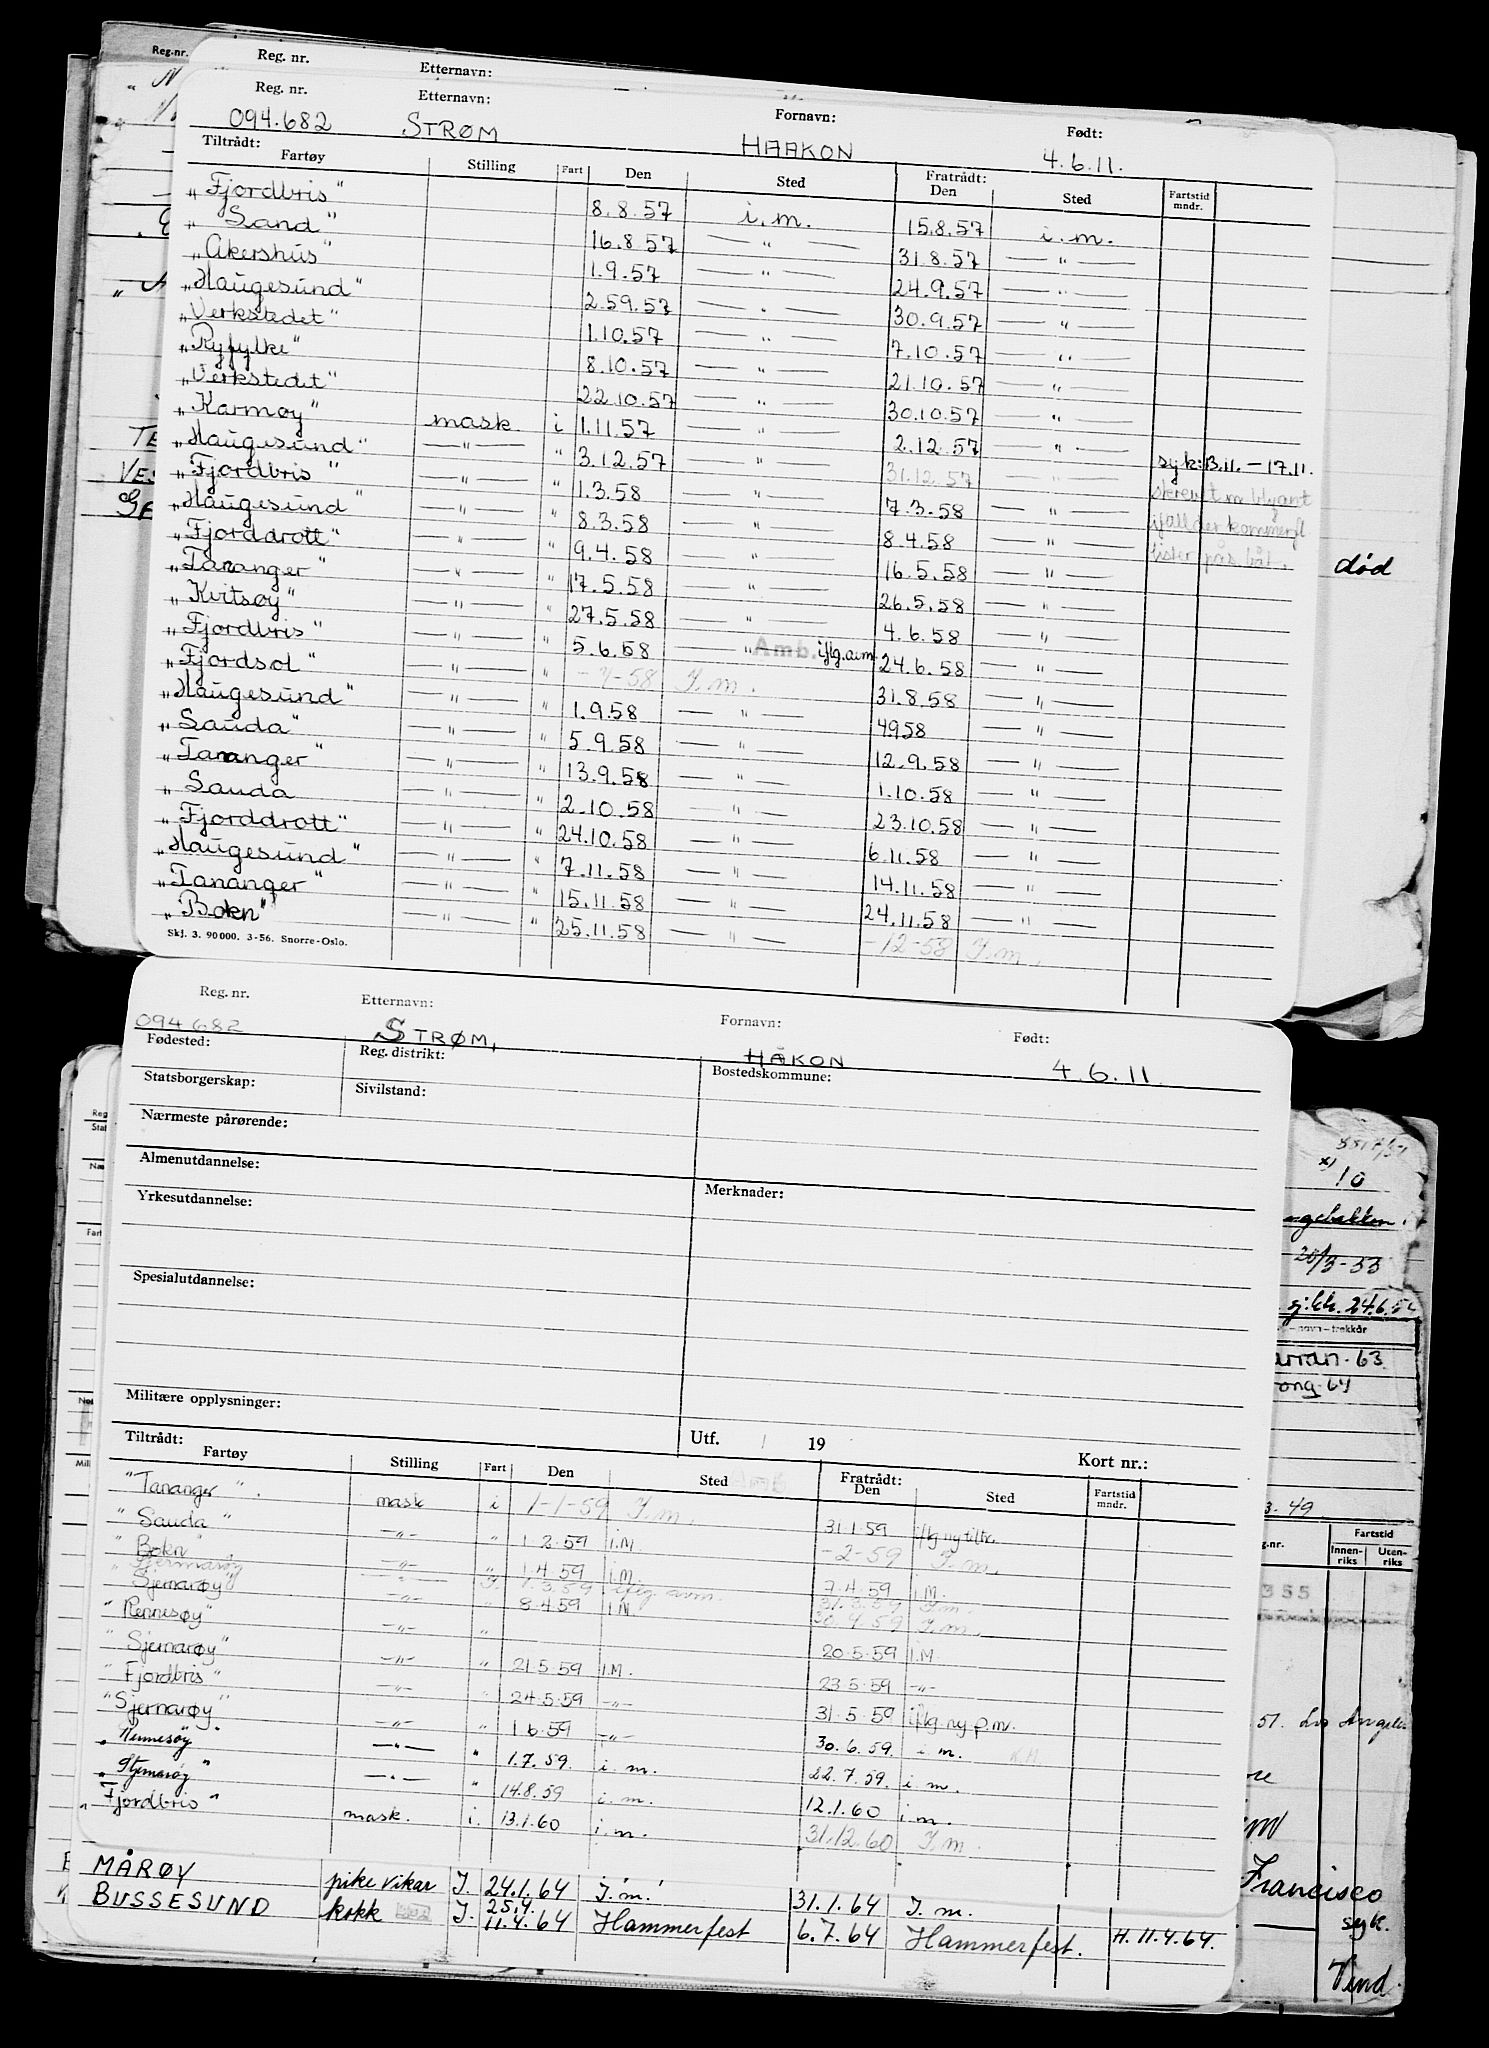 Reg. nr. Etternavn:
Reg. nr. Etternavn: Fornavn: Født:
094.682 STRØM HAAKON 4.6.11.
Tiltrådt: Fartøy Stilling Fart Den Sted Fratrådt: Den Sted Fartstid mndr.
„Fjordbris" 8.8.57 i.m. 15.8.57 i.m.
„Sand" 16.8.57 — " — 31.8.57 — " —
„Akershus" 1.9.57 — " — 24.9.57 — " —
„Haugesund" 2.59.57 — " — 30.9.57 — " —
„Verkstedet" 1.10.57 — " — 7.10.57 — " —
„Ryfylke" 8.10.57 — " — 21.10.57 — " —
„Verkstedet" 22.10.57 — " — 30.10.57 — " —
„Karmøy" mask. i 1.11.57 — " — 2.12.57 — " — syk: 13.11. – 17.11.
„Haugesund" — " — " 3.12.57 — " — 31.12.57 — " — skrevet m blyant
„Fjordbris" — " — " 1.3.58 — " — 7.3.58 — " — ifall der kommer fl
„Haugesund" — " — " 8.3.58 — " — 8.4.58 — " — lister på s. båt.
„Fjorddrott" — " — " 9.4.58 — " — 16.5.58 — " —
„Tananger" — " — " 17.5.58 — " — 26.5.58 — " —
„Kvitsøy" — " — " 27.5.58 — " — 4.6.58 — " —
„Fjordbris" — " — " 5.6.58 — " Amb. iflg. avm. 24.6.58 — " —
„Fjordsol" — " — " - 7-58 I.m. 31.8.58 — " —
„Haugesund" — " — " 1.9.58 — " — 4958 — " —
„Sauda" — " — " 5.9.58 — " — 12.9.58 — " —
„Tananger" — " — " 13.9.58 — " — 1.10.58 — " —
„Sauda — " — " 2.10.58 — " — 23.10.58 — " —
„Fjorddrott" — " — " 24.10.58 — " — 6.11.58 — " —
„Haugesund" — " — " 7.11.58 — " — 14.11.58 — " —
„Tananger" — " — " 15.11.58 — " — 24.11.58 — " —
„Bokn" — " — " 25.11.58 — " — -12-58 I.m.
Skj. 3. 90000. 3-56. Snorre-Oslo.
død
Reg. nr. Etternavn: Fornavn: Født:
094682 STRØM, HÅKON 4.6.11.
Fødested: Reg. distrikt: Bostedskommune:
Statsborgerskap: Sivilstand:
Nærmeste pårørende:
Almenutdannelse:
Yrkesutdannelse: Merknader:
Spesialutdannelse:
Militære opplysninger:
Utf. / 19 Kort nr.:
Tiltrådt: Fartøy Stilling Fart Den Sted Fratrådt: Den Sted Fartstid mndr.
"Tananger". mask i 1-1-59 I.m. 31.1.59 iflg ny tiltr.
"Sauda" —"— " 1.2.59 I.M. -2-59 I.m.
"Bokn" —"— " 1.4.59 I.M. 7.4.59 I.M.
1.3.59 iflg avm. 31.3.59 I.m.
"Sjernarøy" —"— " 8.4.59 I.M. 30.4.59 I.m.
"Rennesøy" —"— " 20.5.59 I.M.
"Sjernarøy" —"— " 21.5.59 I.M. 23.5.59 —"—
"Fjordbris" —"— " 24.5.59 —"— 31.5.59 iflg ny p.m.
"Sjernarøy" —"— " 1.6.59 —"— 30.6.59. i m.
„Rennesøy" —"— " 1.7.59. i. m. 22.7.59. i m.
„Stjernarøy" —"— " 14.8.59 i. m. 12.1.60 i m.
"Fjordbris" mask. i. 13.1.60 i.m. 31.12.60 I.m.
MÅRØY pike vikar I. 24.1.64 I.m. 31.1.64 I. m.
25.4.
BUSSESUND kokk I. 11.4.64 Hammerfest 6.7.64 Hammerfest. H. 11.4.64.
10
20/3-53
sj.kk. 24.6.
-navn-trekkår
-63
ong-64
3.49
Fartstid
Innenriks Utenriks
355
51. Los Angeles
Francisco
syk.